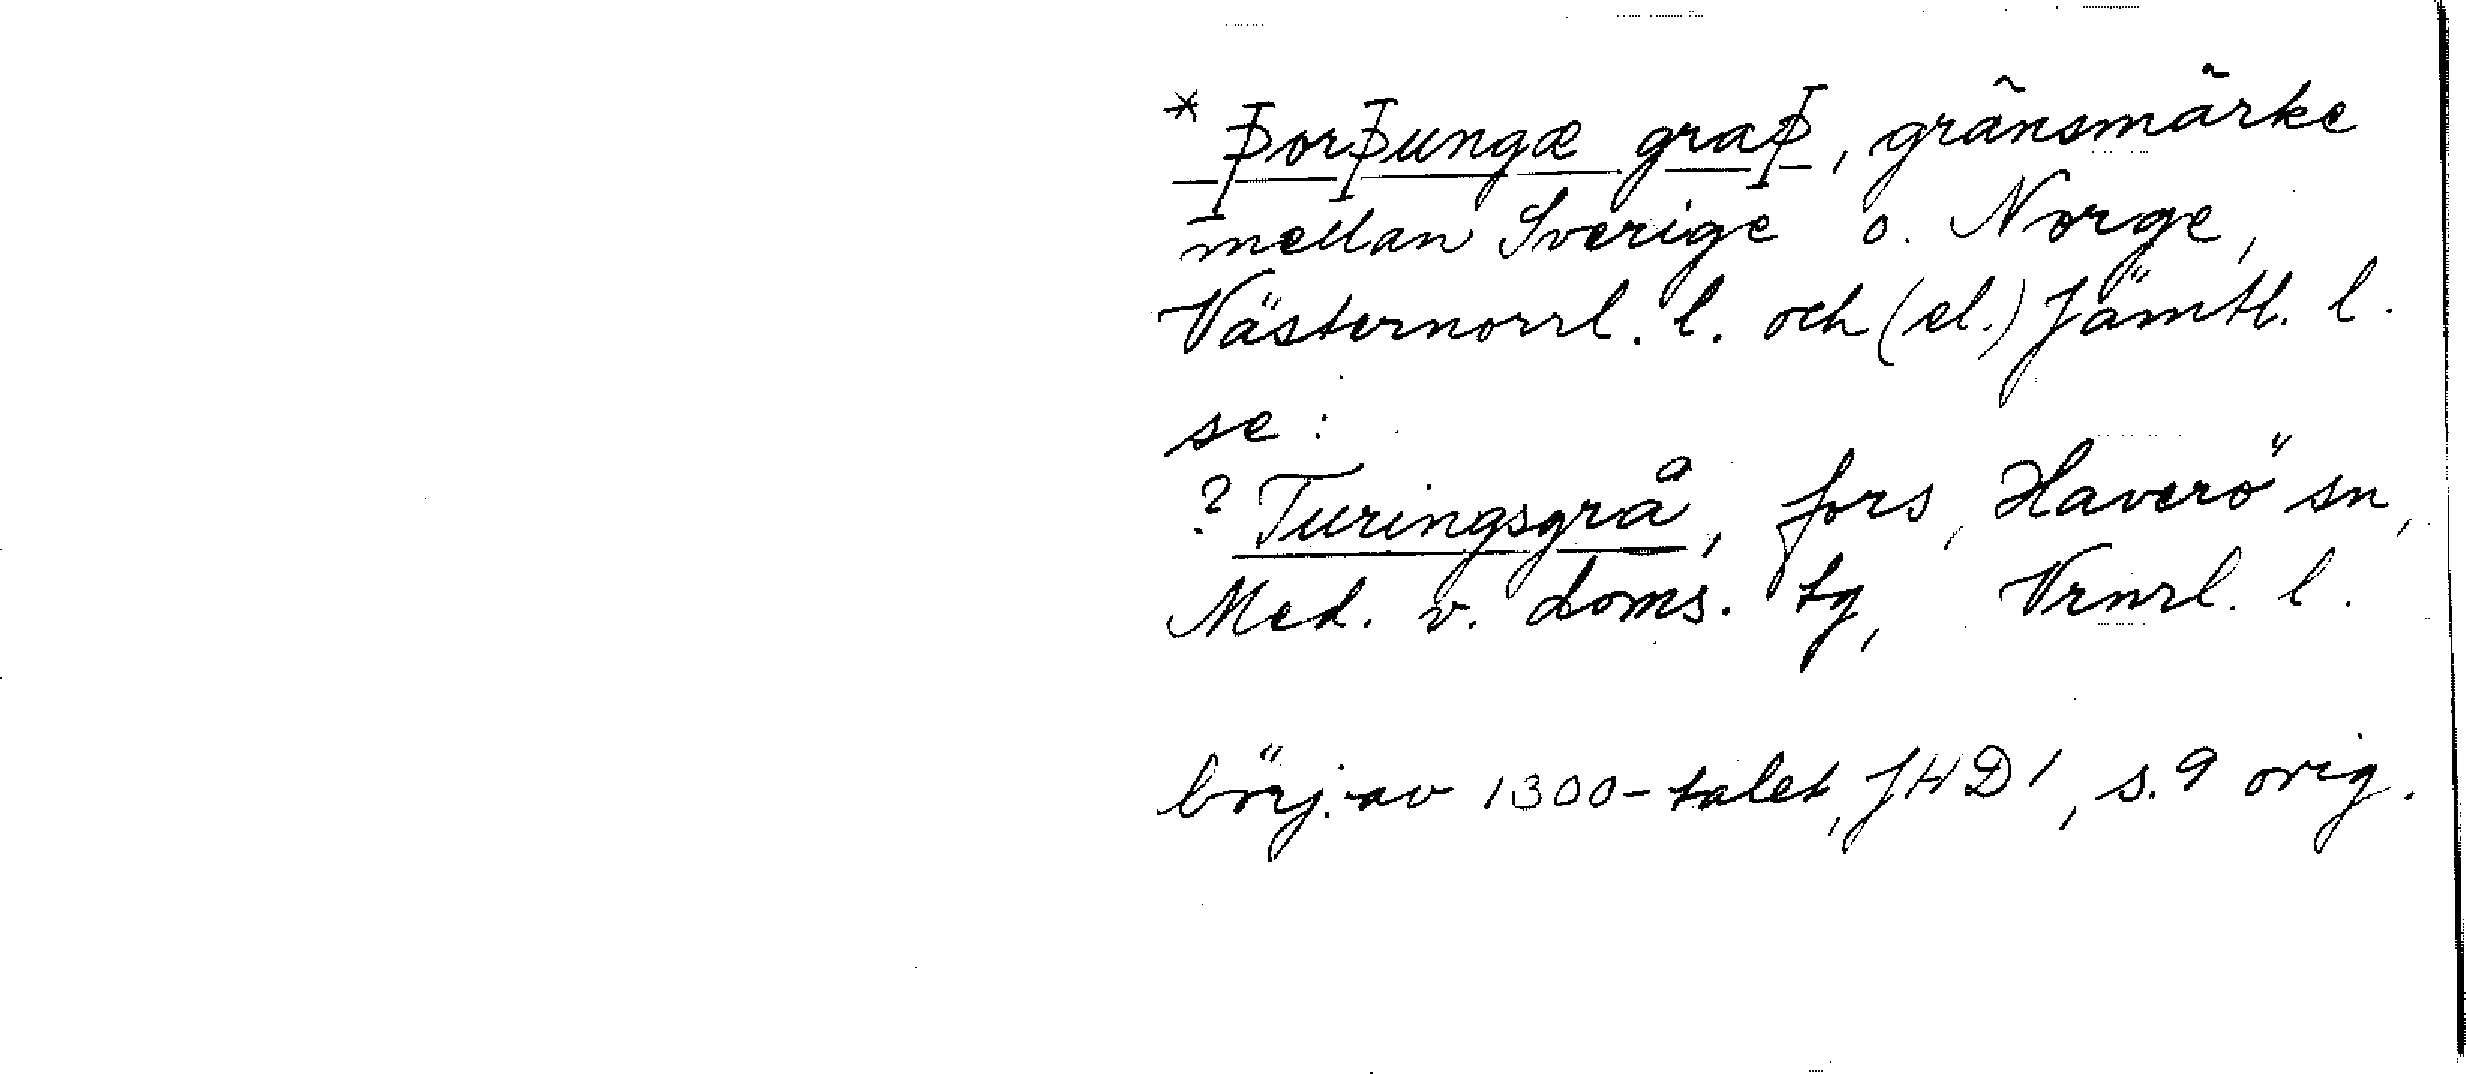 * þorþungæ graþ, gränsmärke
mellan Sverige o. Norge,
Västernorrl. l. och (el.) Jämtl. l.
se:
? Turingsgrå, fors, Haverö sn,
Med. v. doms. tg, Vrnrl. l.
börj. av 1300-talet, JHD 1, s. 9 orig.